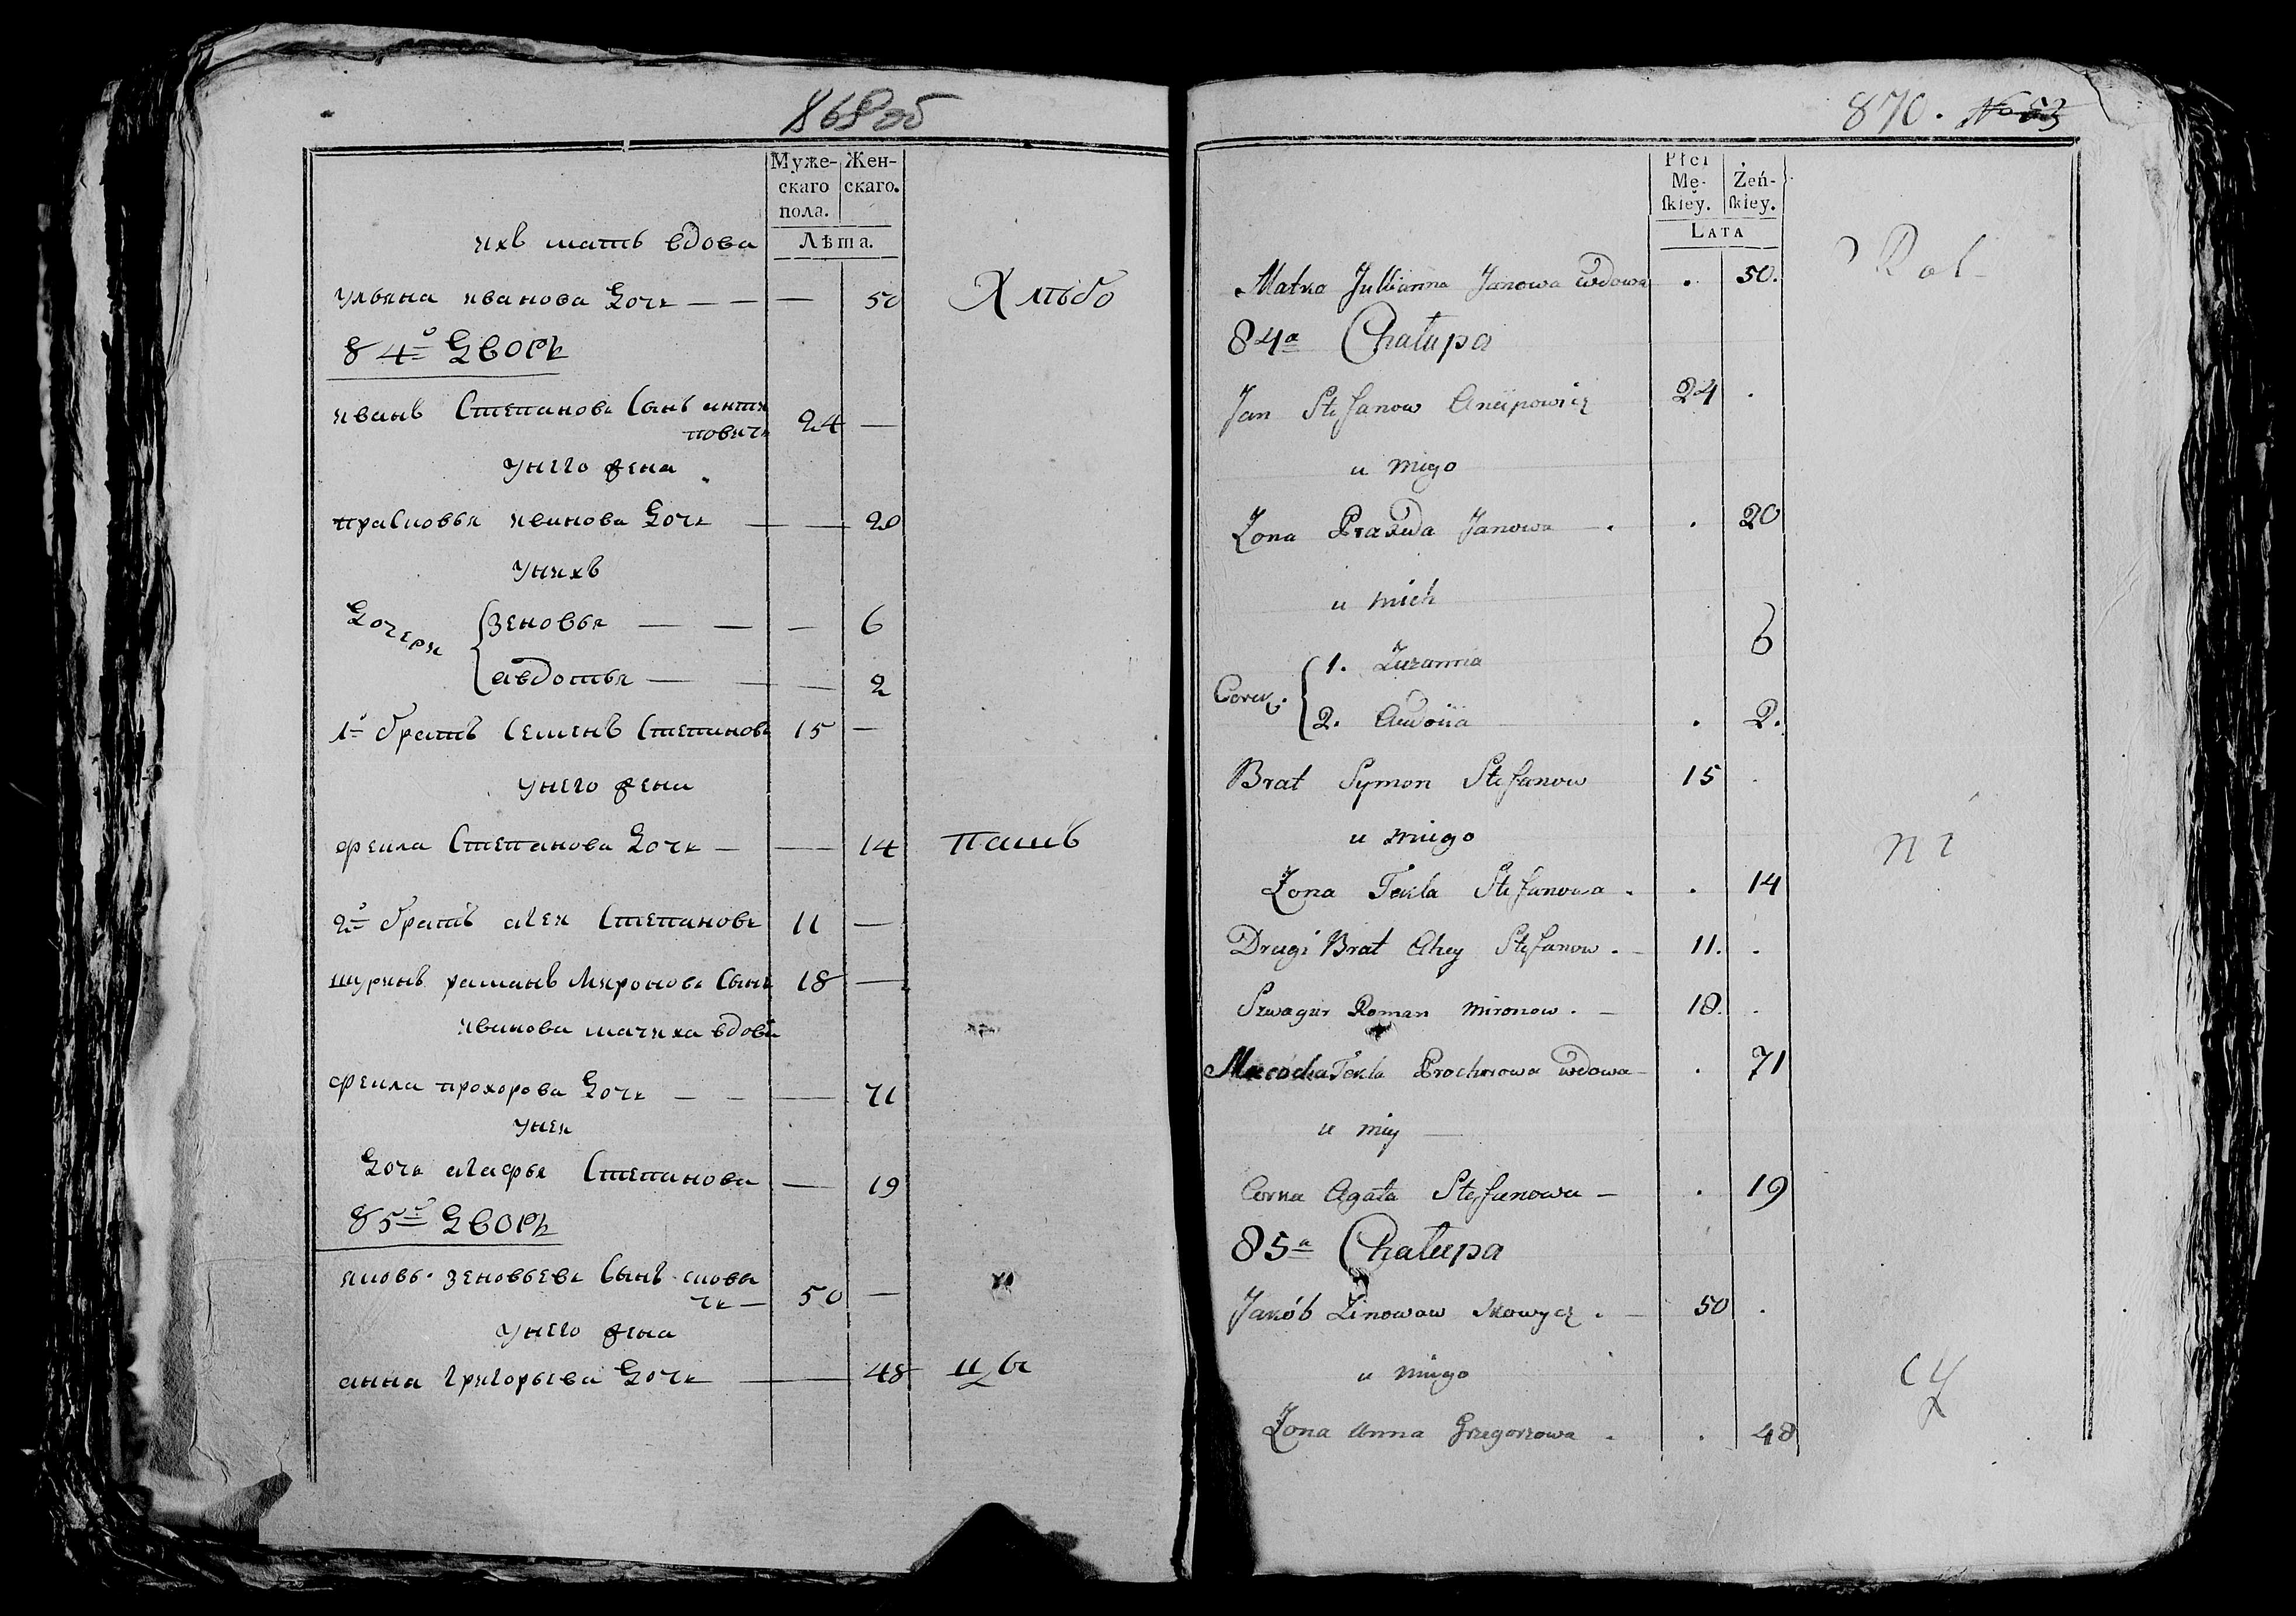 868 об
Муже-
скаго
пола.
Жен-
скаго.
Лѣта.
ихъ мать вдова
ульяна иванова дочь — — — 50
Хлѣбо
84й дворъ
иванъ Степановъ Сынъ анти
повичь 24 —
унего жена
прасковья иванова дочь — — 20
унихъ
дочери
зеновья — — — 6
авдотья — — — 2
1й братъ Семенъ Степановъ 15 —
унего жена
фекла Степанова дочь — — 14
пашъ
2й братъ алек Степановъ 11 —
шуринъ раманъ Мироновъ Сынъ 18 —
иванова мачиха вдова
фекла прохорова дочь — — — 71
унея
дочь агафья Степанова — 19
85й дворъ
яковъ зеновьевъ Сынъ скова
чь — 50 —
унего жена
анна григорьева дочь — 48
цы
870. No 53
Płci
Mę-
ſkiey.
Żeń-
ſkiey.
LATA
Matka Jullianna Janowa wdowa . 50.
Rol-
84a Chałupa
Jan Stefanow Ancipowicz 24 .
u niego
Żona Praxeda Janowa — . . 20
u nich
Corki.
1. Zuzanna 6
2. Awdotia . 2.
Brat Symon Stefanow 15 .
u niego
ni
Żona Tekla Stefanowa . . 14
Drugi Brat Alexy Stefanow . — 11. .
Szwagier Roman Mironow . — 18. .
Macocha Tekla Prochorowa wdowa — . 71
u niey —
Corka Agata Stefanowa — . 19
85a Chałupa
Jakób Zinowow Skowycz . — 50 .
u niego
cy
Żona Anna Grzegorzowa . . 48